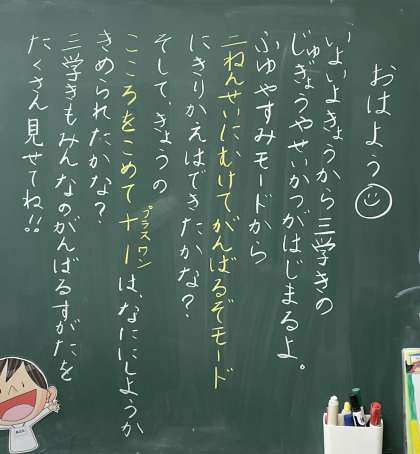 おはよう
いよいよきょうから三学きの
じゅぎょうやせいかつがはじまるよ。
ふゆやすみモードから
二ねんせいにむけてがんばるぞモード
にきりかえはできたかな？
そして、きょうの
こころをこめて＋１は、なににしようか
プラスワン
きめられたかな？
三学きもみんなのがんばるすがたを
たくさん見せてね!!